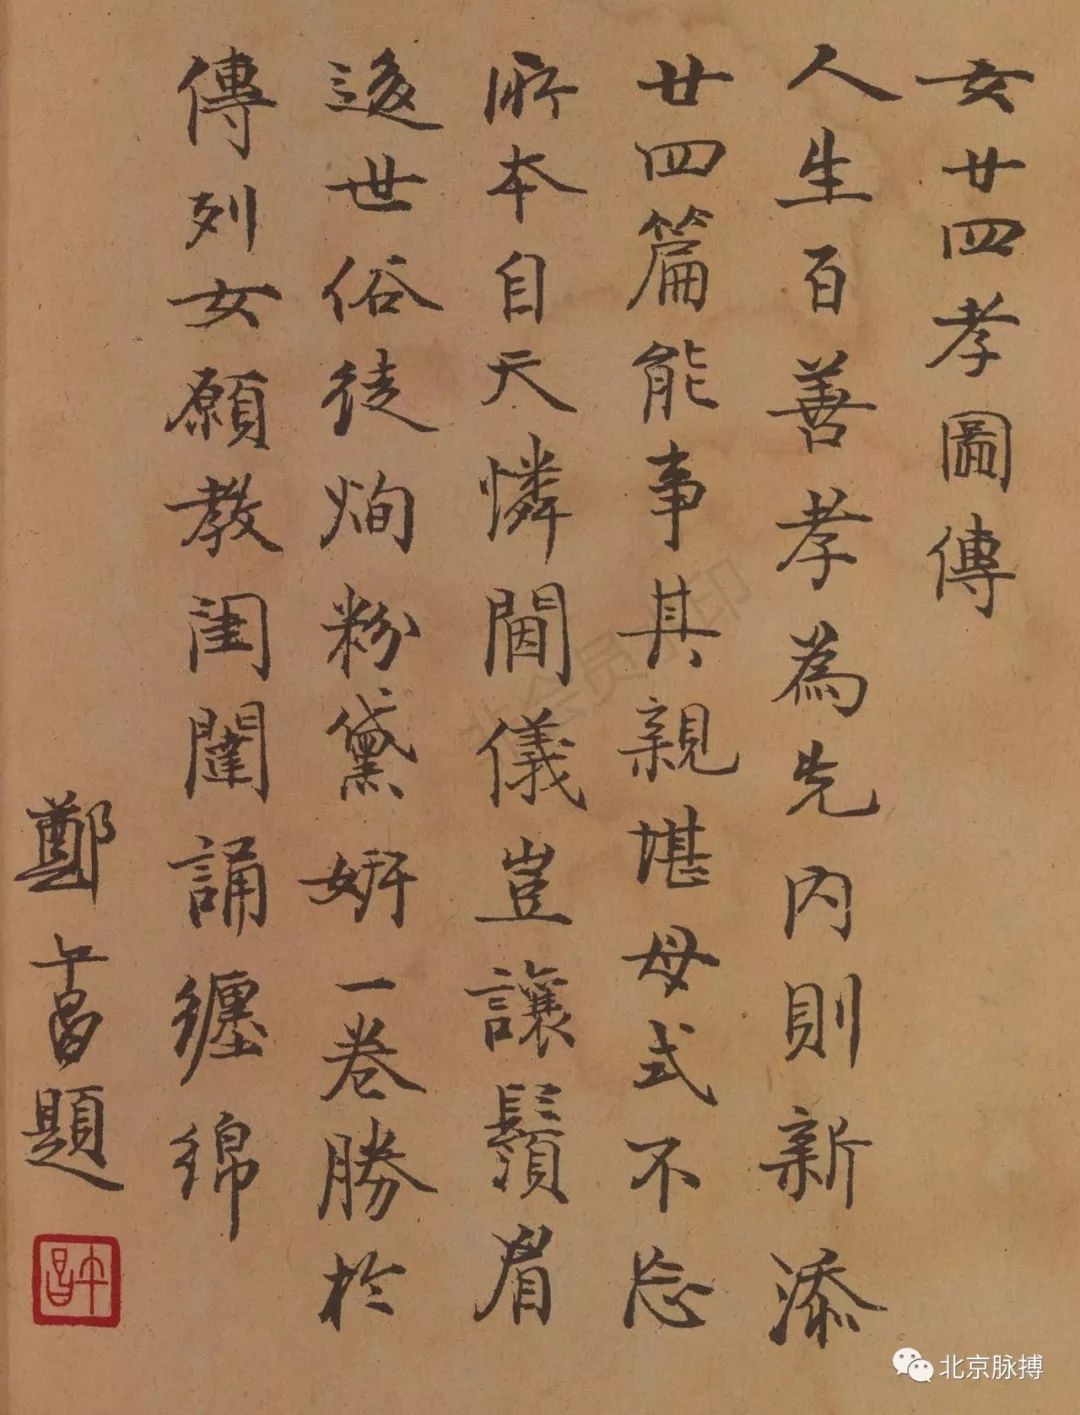 女廿四孝圖傳
人生百善孝為先內則新添
廿四篇能事其親堪母式不忘
所本自天憐閫儀豈讓鬚眉
後世俗徒粉黛妍一卷勝於
傳列女願教閨闥誦纏綿
鄭午昌題
午昌
北京脉搏